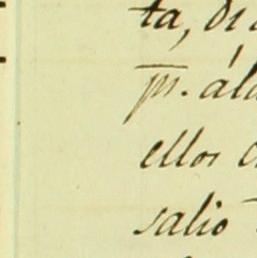 ta, di
pu. ála
ellos
salio